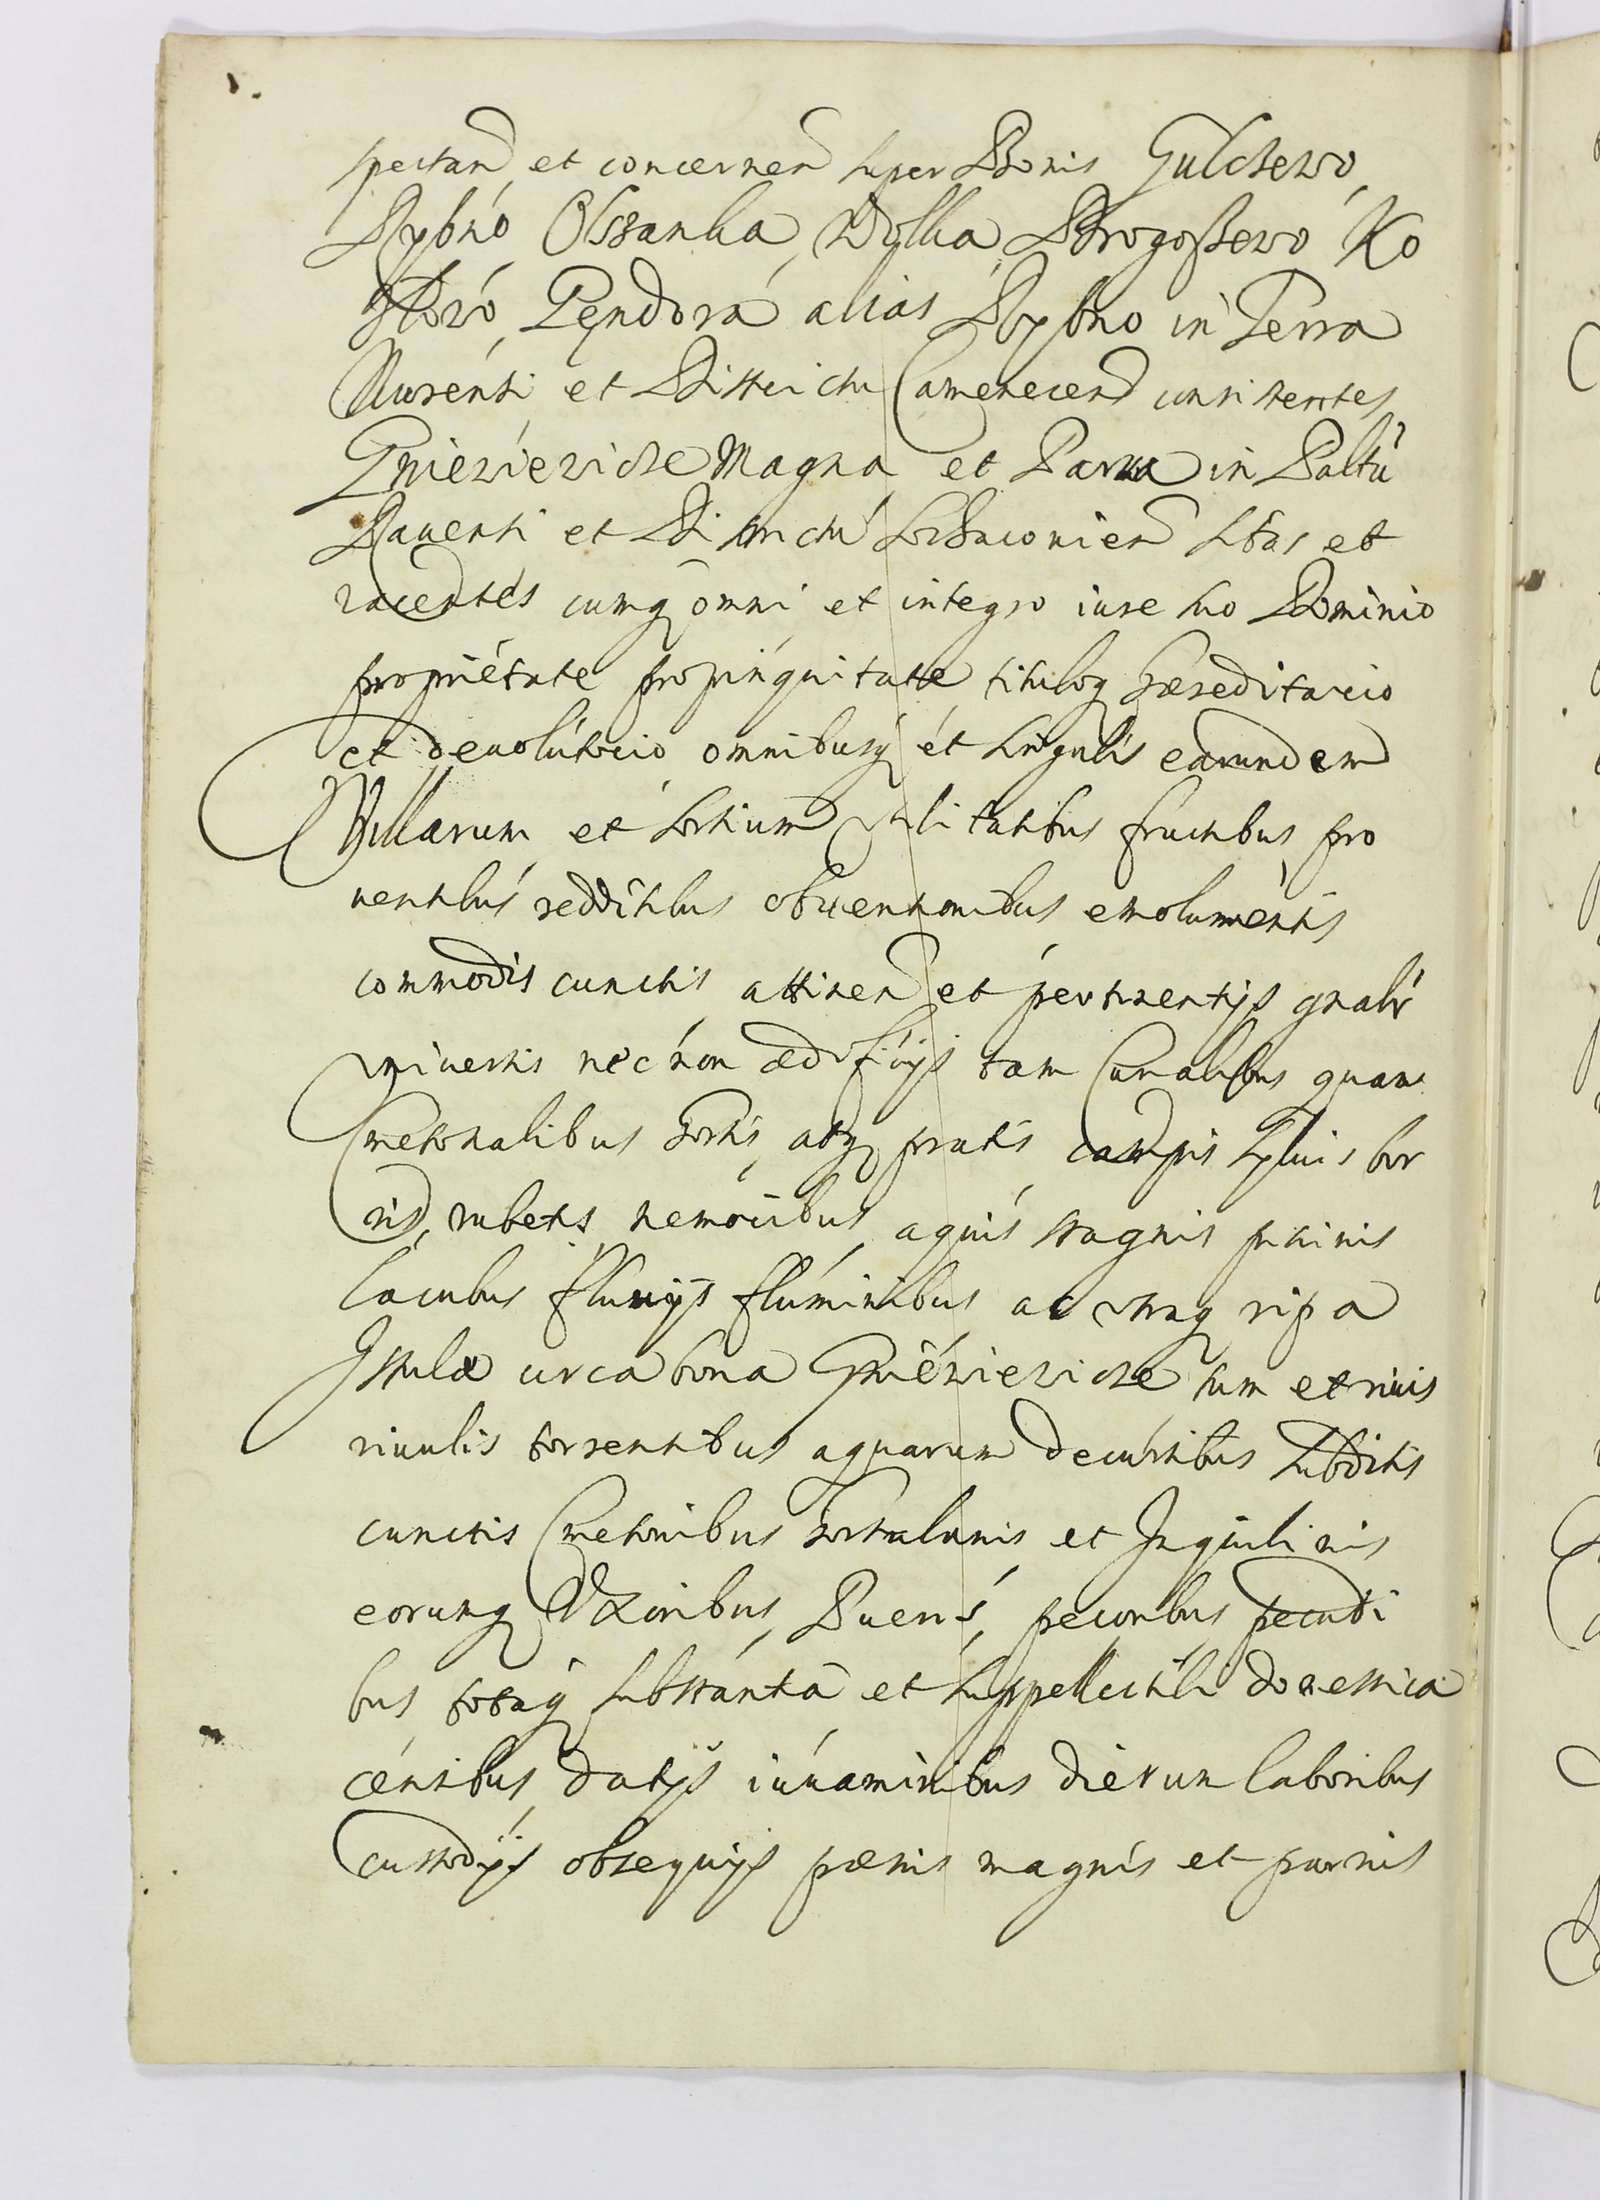 spectan et concernen super Bonis Gulczewo,
Rybno, Olszanka, Wolka, Drogoszewo Ko
złowo, Pęndora alias Rybno in Terra
Nurensi et Districtu Camenecen consistentes,
Gniewiewicze Magna et Parva in Paltu
Ravensi et Districtu Sochaconien sitas et
iacentes cumq omni et integro iure suo Dominio
proprietate propinquitate tituloq hæreditario
et devolutorio omnibusq et singulis earundem
Villarum et sortium utilitatibus fructibus, pro
ventibus redditibus obventionibus emolumentis
commodis cunctis attinen et pertinentijs gnalr
universis nec non ædificijs tam Curialibus quam
Cmetonalibus hortis, atq pratis campis sylvis bor
ris, rubetis, nemoribus aquis stagnis piscinis
lacubus fluvijs fluminibus ac utraq ripa
Istulæ circa bona Gniewiewicze tum et rivis
rivulis torrentibus aquarum decursibus subditis
cunctis Cmetonibus hortulanis et Inquilinis
eorumq Uxoribus, Pueris, pecoribus pecudi
bus totaq substantia et suppellectili domestica
censibus, datijs iuvaminibus dierum laboribus
custodijs obsequijs pænis magnis et parvis